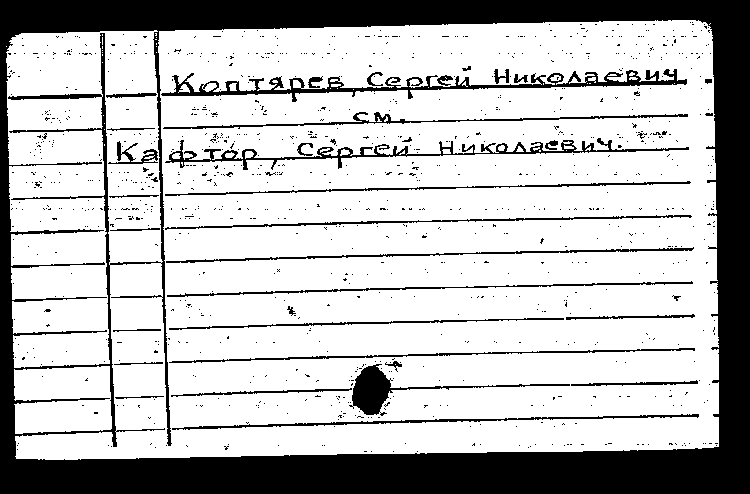 Коптярев, Сергей Николаевич
см.
Кафтор, Сергей Николаевич.